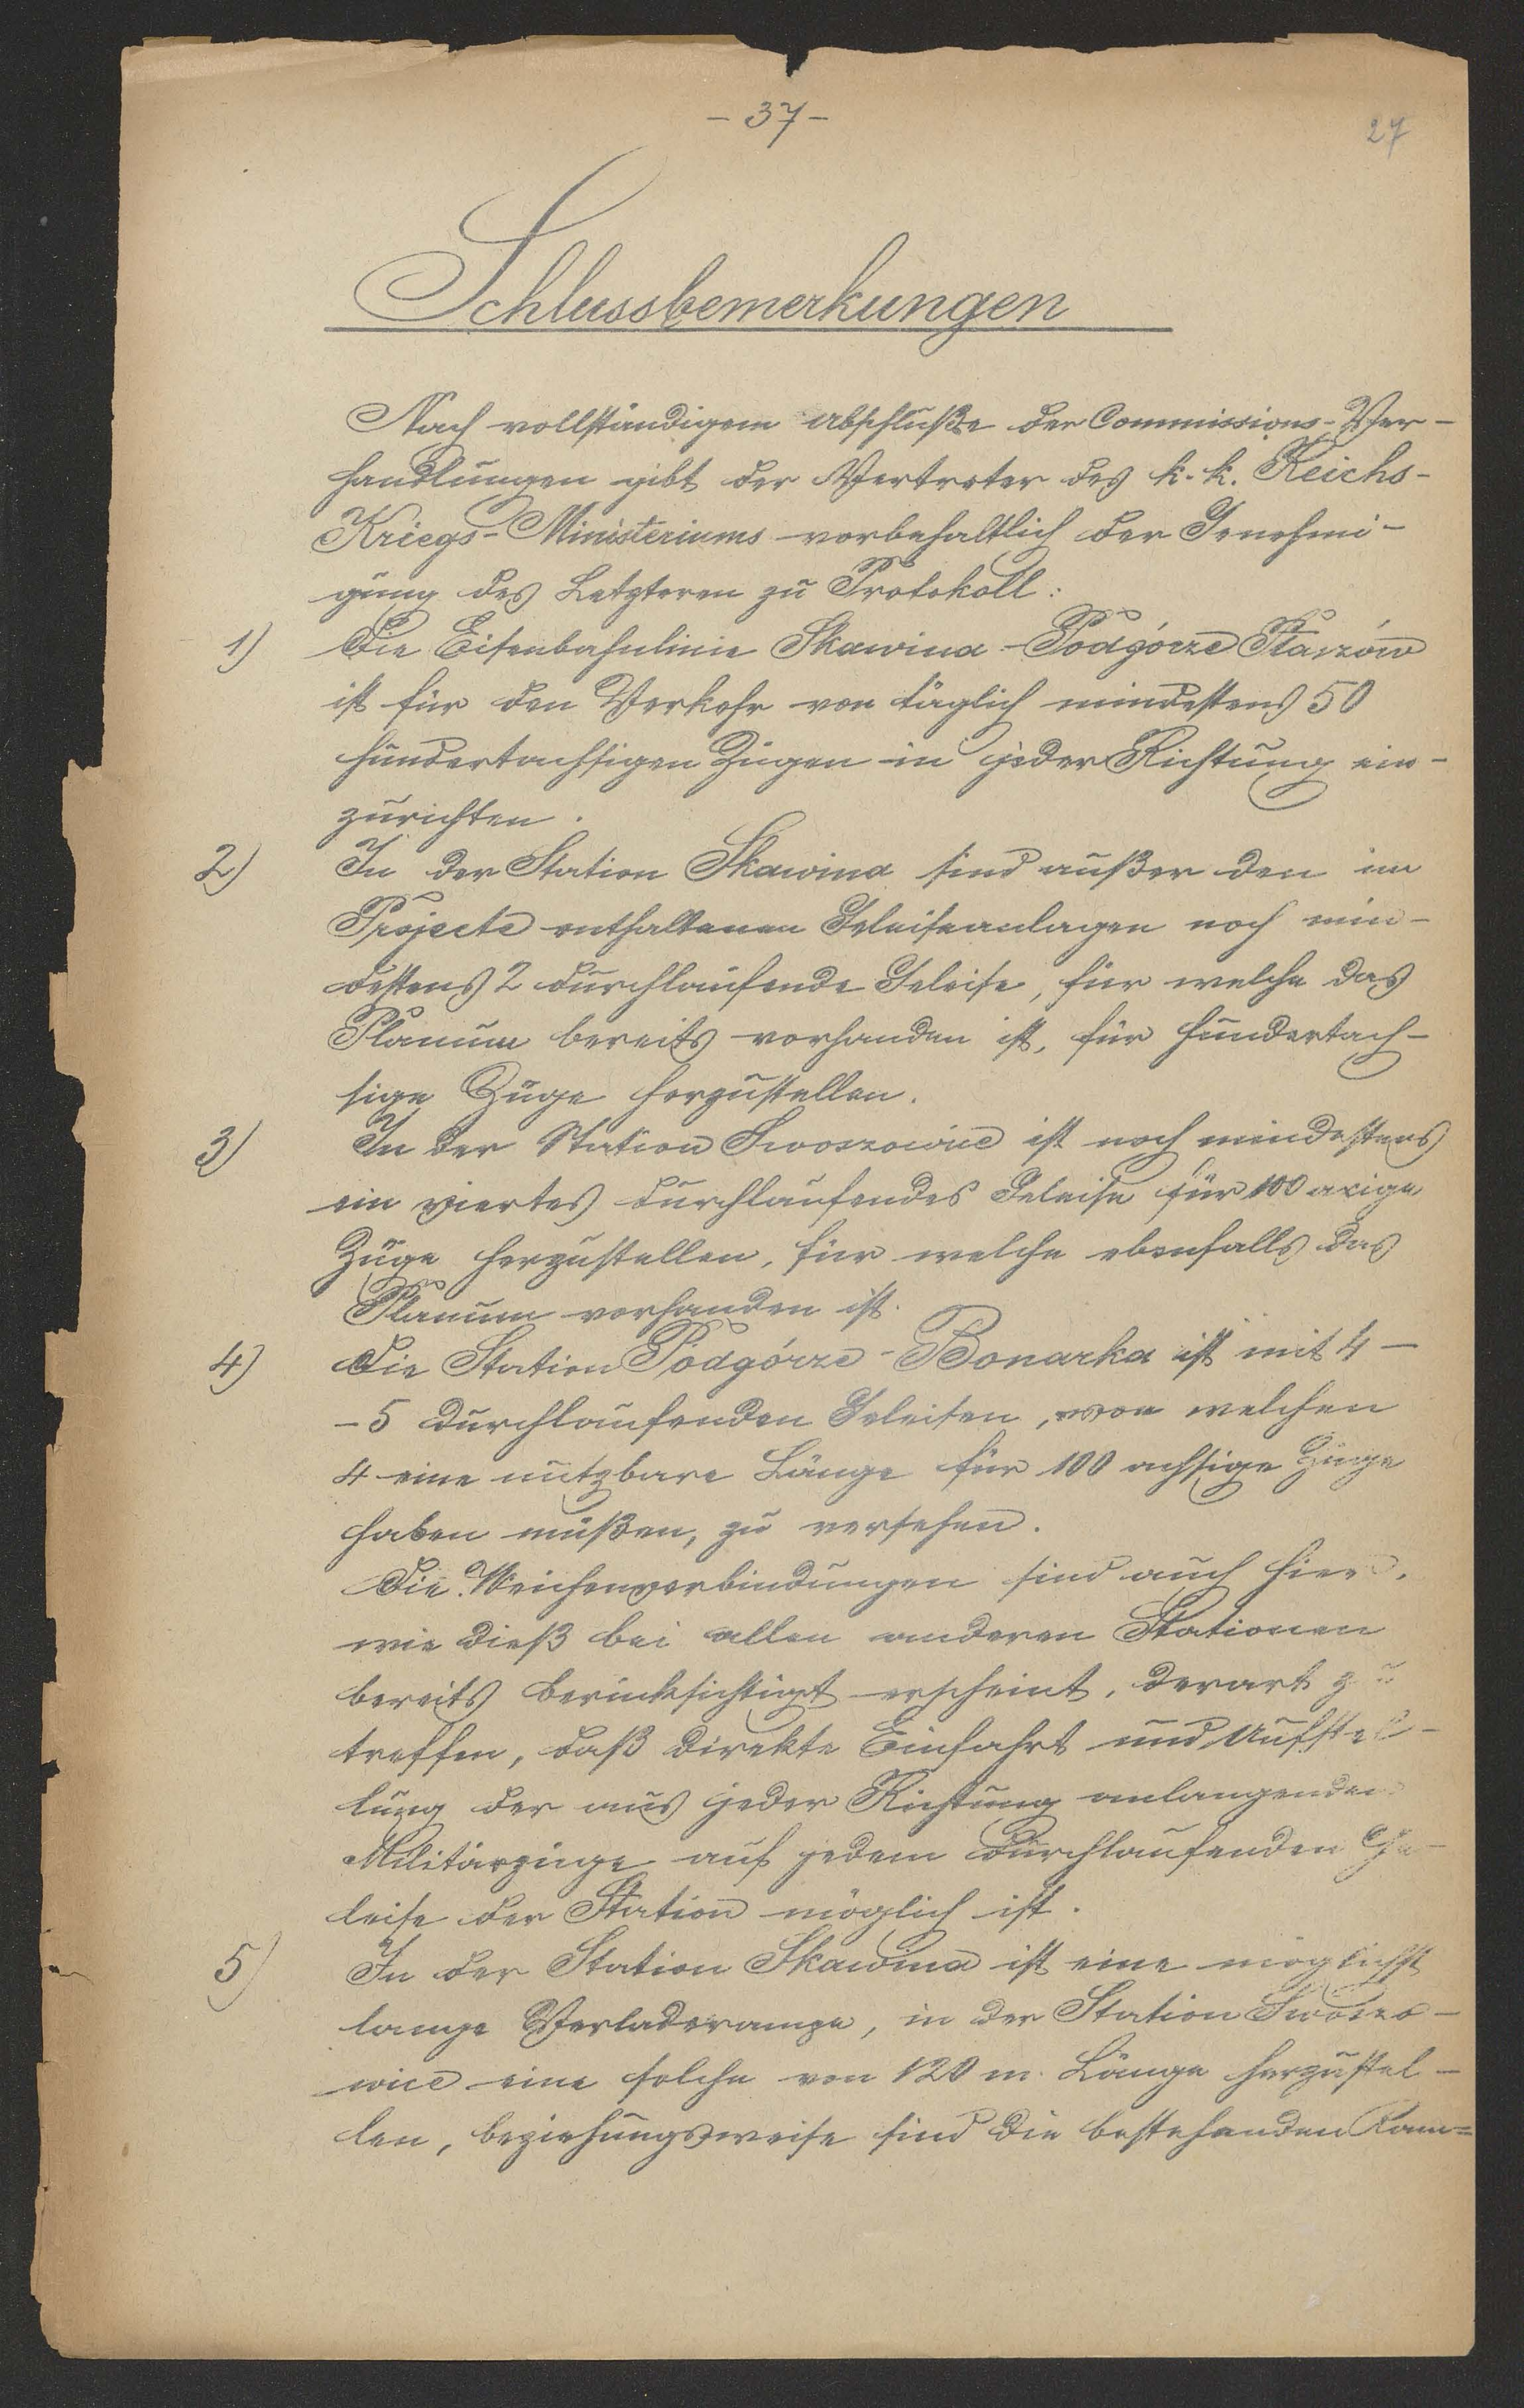 - 37 -
27
Schlussbemerkungen
Nach vollständigem Abschluße der Commissions-Ver-
handlungen gibt der Vertreter des k. k. Reichs-
Kriegs-Ministeriums vorbehaltlich der Genehmi-
gung des Letzteren zu Protokoll:
1) Die Eisenbahnlinie Skawina-Podgórze Płaszów
ist für den Verkehr von täglich mindestens 50
hundertachsigen Zügen in jeder Richtung ein-
zurichten.
2) In der Station Skawina sind außer den im
Projecte enthaltenen Geleiseanlagen noch min-
destens 2 durchlaufende Geleise, für welche das
Planum bereits vorhanden ist, für hundertach-
sige Züge herzustellen.
3) In der Station Swoszowice ist noch mindestens
ein viertes durchlaufendes Geleise für 100 axige
Züge herzustellen, für welche ebenfalls das
Planum vorhanden ist.
4) Die Station Podgórze-Bonarka ist mit 4-
-5 durchlaufenden Geleisen, von welchen
4 eine nutzbare Länge für 100 achsige Züge
haben müßen, zu versehen.
Die Weichenverbindungen sind auch hier,
wie dieß bei allen anderen Stationen
bereits berücksichtigt erscheint, derart zu
treffen, daß direkte Einfahrt und Aufstel-
lung der aus jeder Richtung anlangenden
Militärzüge auf jedem durchlaufenden Ge-
leise der Station möglich ist.
5) In der Station Skawina ist eine möglichst
lange Verladerampe, in der Station Swoszo-
wice eine solche von 120 m. Länge herzustel-
len, beziehungsweise sind die bestehenden Ram=